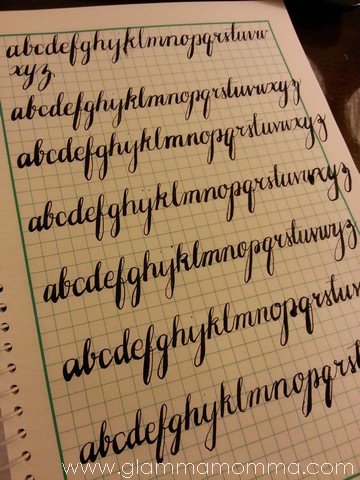 abcdefghijklmnopqrstuvw
xyz
abcdefghijklmnopqrstuvwxyz
abcdefghijklmnopqrstuvwxyz
abcdefghijklmnopqrstuvwxyz
abcdefghijklmnopqrstuvwyz
abcdefghijklmnopqrstuv
abcdefghijklmnopqrst
www.glammamomma.com